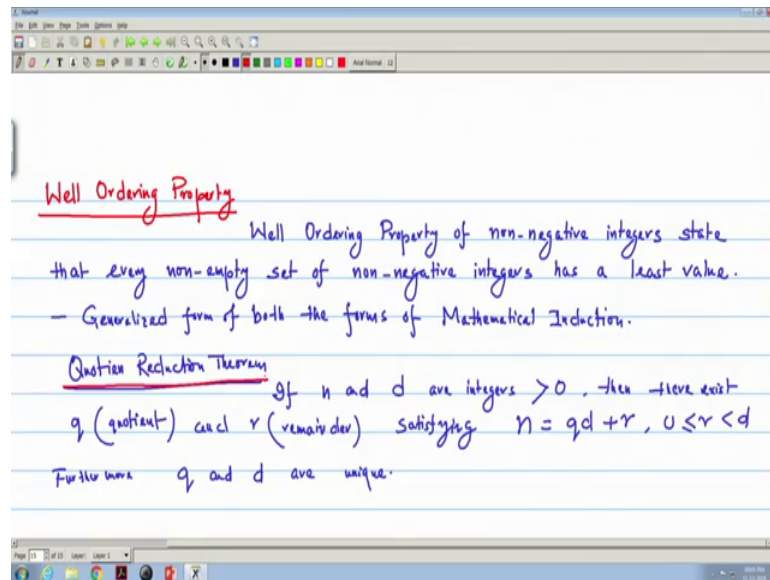 Journal
File Edit View Page Tools Options Help
Arial Normal 12
Well Ordering Property
Well Ordering Property of non-negative integers state
that every non-empty set of non-negative integers has a least value.
— Generalized form of both the forms of Mathematical Induction.
Quotian Reduction Theorem
If n and d are integers > 0, then there exist
q (quotient) and r (remainder) satisfying n = qd + r, 0 ≤ r < d
Further more q and d are unique.
Page 15 of 15 Layer: Layer 1